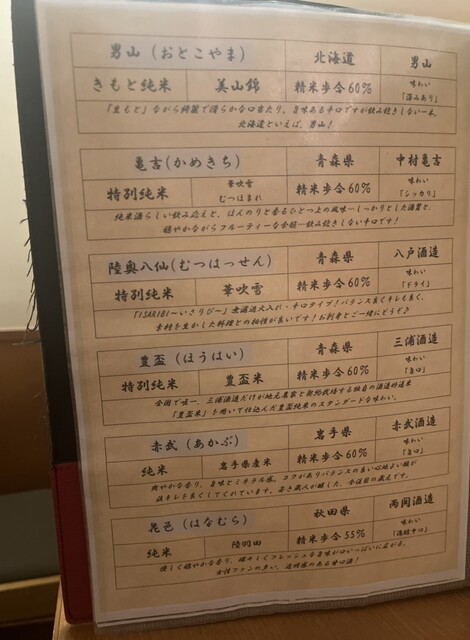 男山（おとこやま） 北海道 男山
きもと純米 美山錦 精米歩合60% 味わい「深みあり」
「生もと」ながら綺麗で滑らかな口当たり、旨味ある辛口ですが飲み飽きしない一本。
北海道といえば、男山！
亀吉（かめきち） 青森県 中村亀吉
特別純米 華吹雪 むつほまれ 精米歩合60% 味わい「シッカリ」
純米酒らしい飲み応えと、ほんのりと香るひとつ上の風味…しっかりとした酒質と、
穏やかながらフルーティーな余韻…飲み飽きしない辛口です！
陸奥八仙（むつはっせん） 青森県 八戸酒造
特別純米 華吹雪 精米歩合60% 味わい「ドライ」
「ISARIBI～いさりび～」無濾過火入れ・辛口タイプ！バランス良くキレも良く、
素材を生かした料理との相性が良いです！お刺身とご一緒にどうぞ♪
豊盃（ほうはい） 青森県 三浦酒造
特別純米 豊盃米 精米歩合60% 味わい「旨口」
全国で唯一、三浦酒造だけが地元農家と契約栽培する独自の酒造好適米
「豊盃米」を用いて仕込んだ豊盃純米のスタンダードな味わい。
赤武（あかぶ） 岩手県 赤武酒造
純米 岩手県産米 精米歩合60% 味わい「旨口」
爽やかな香り、旨味とミネラル感、コクがありバランスの良い心地よい酸が
後キレを良くしてくれています。若き蔵人が醸した、今注目の蔵元です。
花邑（はなむら） 秋田県 両関酒造
純米 陸羽田 精米歩合55% 味わい「濃醇甘口」
優しく穏やかな香り、瑞々しくフレッシュな旨味が口いっぱいに広がる、
女性ファンの多い、透明感のある甘口酒！